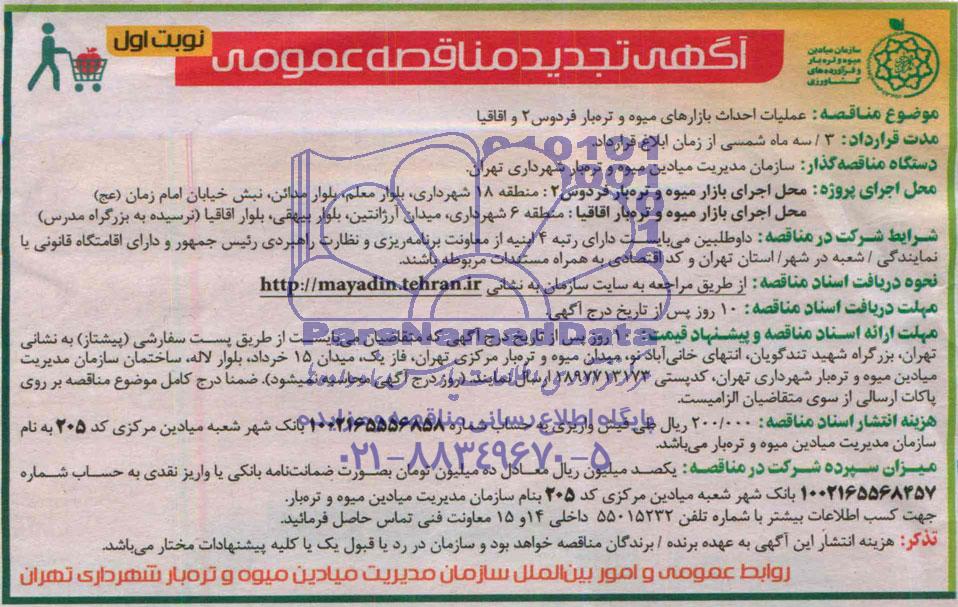 سازمان میادین
میوه و تره‌بار
و فرآورده‌های
کشاورزی
آگهی تجدید مناقصه عمومی
نوبت اول
موضوع مناقصه: عملیات احداث بازارهای میوه و تره‌بار فردوس۲ و اقاقیا
مدت قرارداد: ۳ / سه ماه شمسی از زمان ابلاغ قرارداد.
دستگاه مناقصه‌گذار: سازمان مدیریت میادین میوه و تره‌بار شهرداری تهران.
محل اجرای پروژه: محل اجرای بازار میوه و تره‌بار فردوس۲: منطقه ۱۸ شهرداری، بلوار معلم، بلوار مدائن، نبش خیابان امام زمان (عج)
محل اجرای بازار میوه و تره‌بار اقاقیا: منطقه ۶ شهرداری، میدان آرژانتین، بلوار بیهقی، بلوار اقاقیا (نرسیده به بزرگراه مدرس)
شرایط شرکت در مناقصه: داوطلبین می‌بایست دارای رتبه ۴ ابنیه از معاونت برنامه‌ریزی و نظارت راهبردی رئیس جمهور و دارای اقامتگاه قانونی یا
نمایندگی / شعبه در شهر/ استان تهران و کد اقتصادی به همراه مستندات مربوطه باشند.
نحوه دریافت اسناد مناقصه: از طریق مراجعه به سایت سازمان به نشانی http://mayadin.tehran.ir
مهلت دریافت اسناد مناقصه: ۱۰ روز پس از تاریخ درج آگهی.
مهلت ارائه اسناد مناقصه و پیشنهاد قیمت: ۱۰ روز پس از تاریخ درج آگهی که متقاضیان می‌بایست از طریق پست سفارشی (پیشتاز) به نشانی
تهران، بزرگراه شهید تندگویان، انتهای خانی‌آباد نو، میدان میوه و تره‌بار مرکزی تهران، فاز یک، میدان ۱۵ خرداد، بلوار لاله، ساختمان سازمان مدیریت
میادین میوه و تره‌بار شهرداری تهران، کدپستی ۱۸۹۷۷۱۳۱۷۳ ارسال نمایند. (روز درج آگهی محاسبه نمیشود). ضمنا درج کامل موضوع مناقصه بر روی
پاکات ارسالی از سوی متقاضیان الزامیست.
هزینه انتشار اسناد مناقصه: ۲۰۰/۰۰۰ ریال طی فیش واریزی به حساب شماره ۱۰۰۲۱۶۵۵۵۶۸۵۸ بانک شهر شعبه میادین مرکزی کد ۲۰۵ به نام
سازمان مدیریت میادین میوه و تره‌بار می‌باشد.
میزان سپرده شرکت در مناقصه: یکصد میلیون ریال معادل ده میلیون تومان بصورت ضمانت‌نامه بانکی یا واریز نقدی به حساب شماره
۱۰۰۲۱۶۵۵۶۸۴۵۷ بانک شهر شعبه میادین مرکزی کد ۲۰۵ بنام سازمان مدیریت میادین میوه و تره‌بار.
جهت کسب اطلاعات بیشتر با شماره تلفن ۵۵۰۱۵۲۳۲ داخلی ۱۴و ۱۵ معاونت فنی تماس حاصل فرمائید.
تذکر: هزینه انتشار این آگهی به عهده برنده / برندگان مناقصه خواهد بود و سازمان در رد یا قبول یک یا کلیه پیشنهادات مختار می‌باشد.
روابط عمومی و امور بین‌الملل سازمان مدیریت میادین میوه و تره‌بار شهرداری تهران
ParsNamadData
پایگاه اطلاع رسانی مناقصه و مزایده
۰۲۱-۸۸۳۴۹۶۷۰-۵